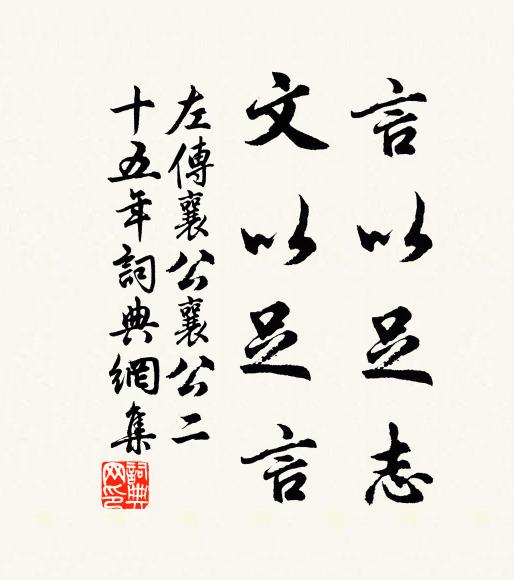 言以足志
文以足言
左傳襄公襄公二
十五年詞典網集
詞典
网印